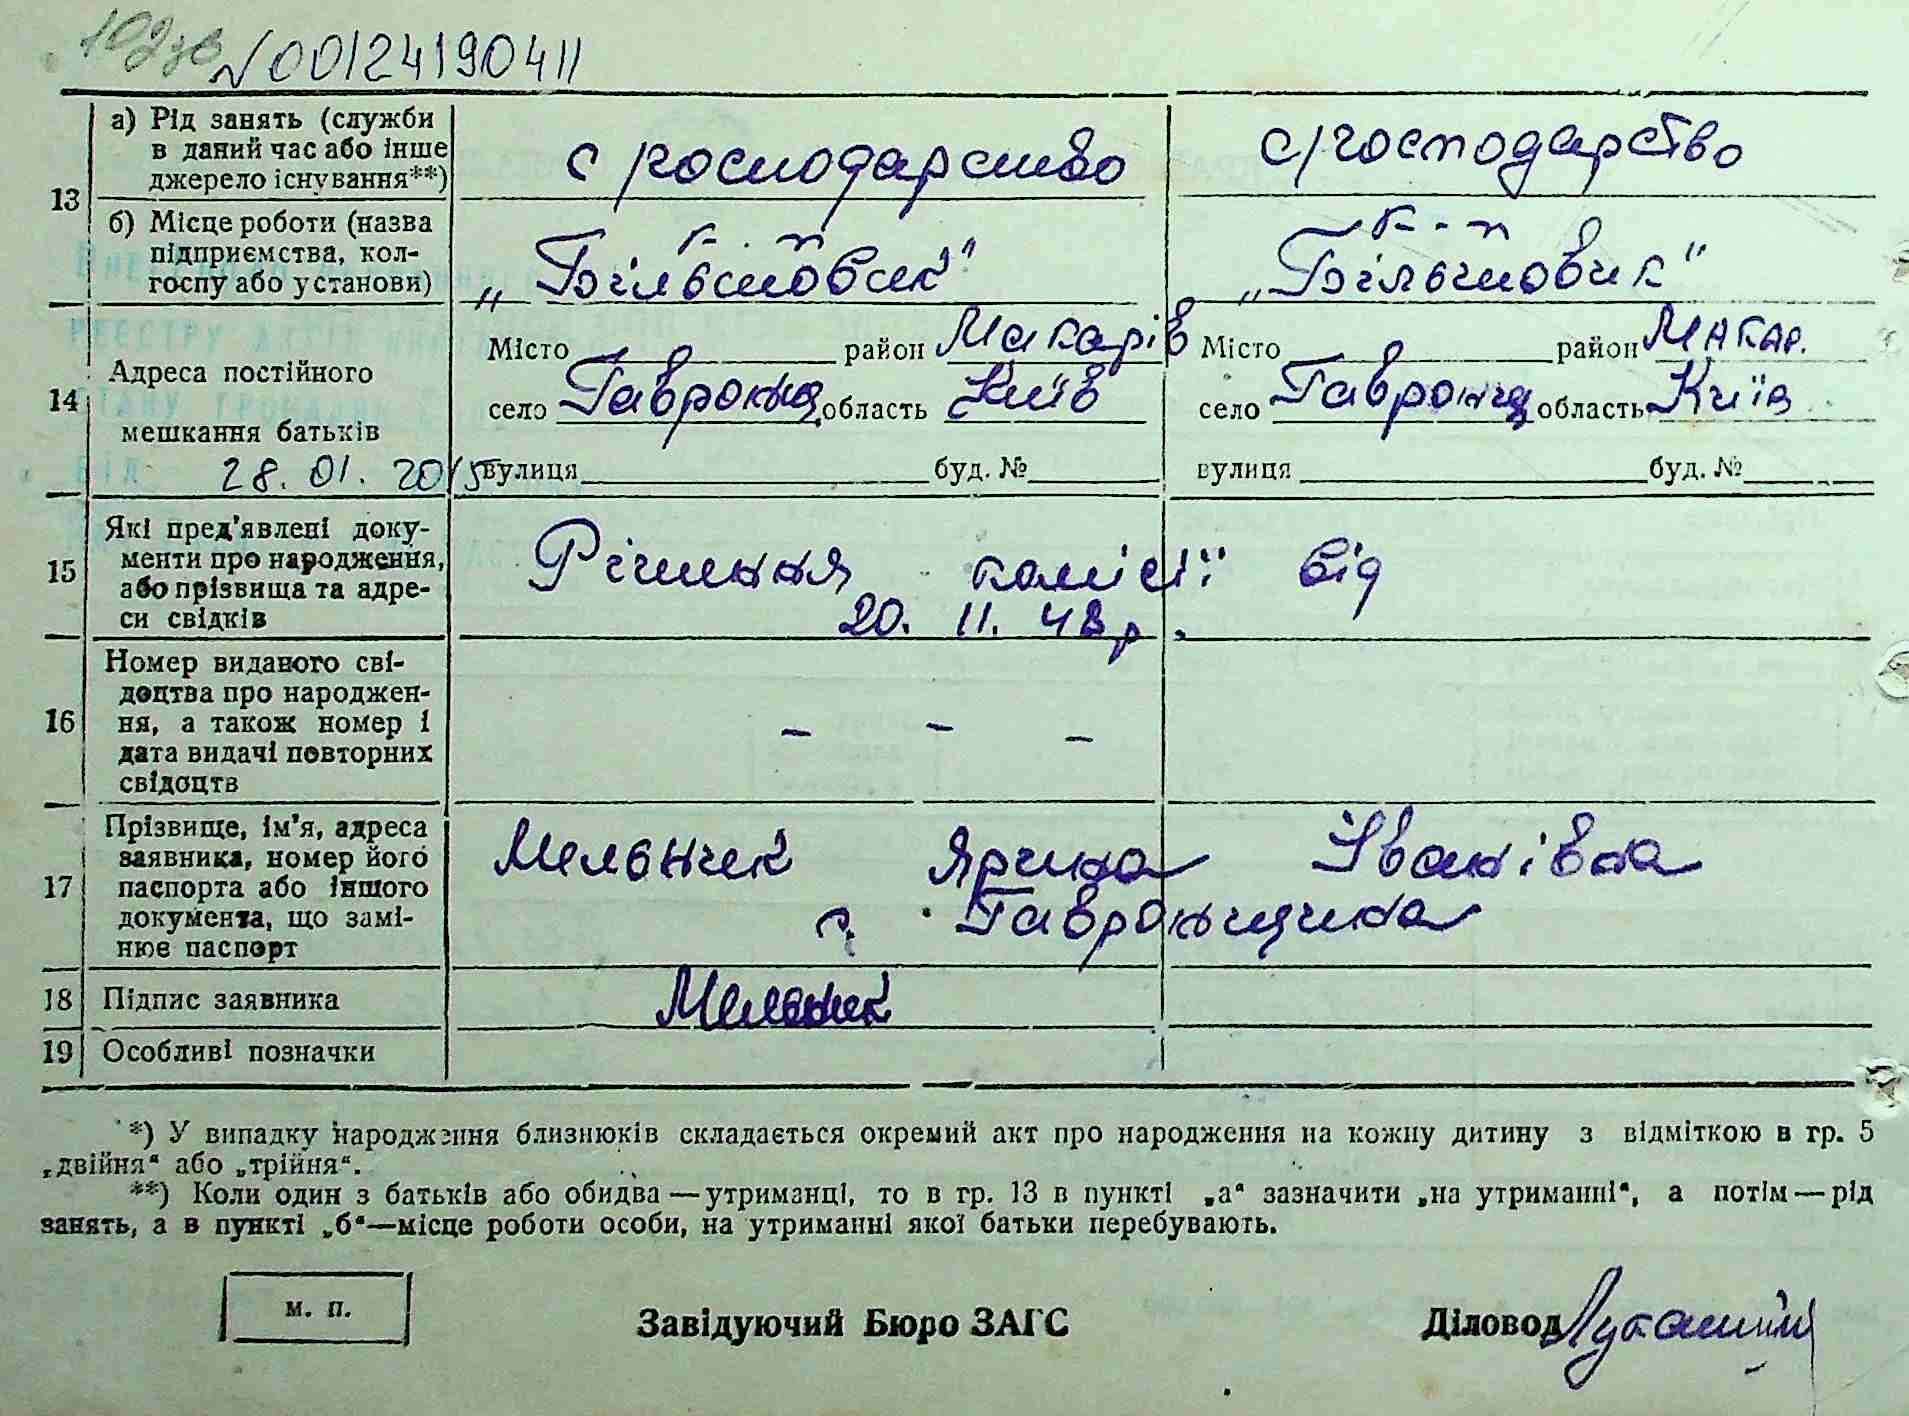 №00124190411
13
а) Рід занять (служби
в даний час або інше
джерело існування**)
с господарство
с/господарство
б) Місце роботи (назва
підприємства, кол-
госпу або установи)
к-п
„Більшовик"
к-п
„Більшовик"
14
Адреса постійного
мешкання батьків
28.01.2015
Місто район Макарів
село Гавронщ. область Київ
вулиця буд. №
Місто район Макар.
село Гавронщ область Київ
вулиця буд. №
15
Які пред'явлені доку-
менти про народження,
або прізвища та адре-
си свідків
Рішення комісії від
20. 11. 48 р.
16
Номер виданого сві-
доцтва про народжен-
ня, а також номер і
дата видачі повторних
свідоцтв
- - -
17
Прізвище, ім'я, адреса
заявника, номер його
паспорта або іншого
документа, що замі-
нює паспорт
Мельник Ярина Іванівна
с. Гавронщина
18
Підпис заявника
Мельник
19
Особливі позначки
*) У випадку народження близнюків складається окремий акт про народження на кожну дитину з відміткою в гр. 5
„двійня“ або „трійня“.
**) Коли один з батьків або обидва — утриманці, то в гр. 13 в пункті „а“ зазначити „на утриманні“, а потім — рід
занять, а в пункті „б“—місце роботи особи, на утриманні якої батьки перебувають.
м. п.
Завідуючий Бюро ЗАГС
Діловод